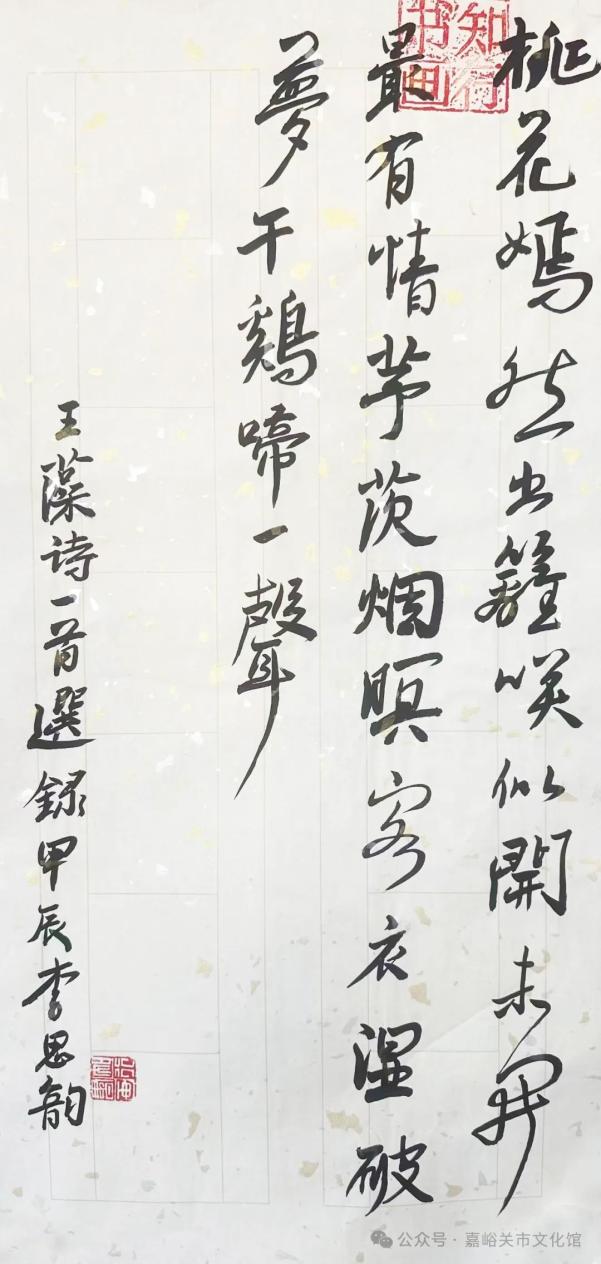 知行书画
桃花嫣然出籬咲似開未開
最有情茅茨烟暝客衣湿破
夢午鷄啼一聲
王藻诗一首選録甲辰李思韵
公众号·嘉峪关市文化馆